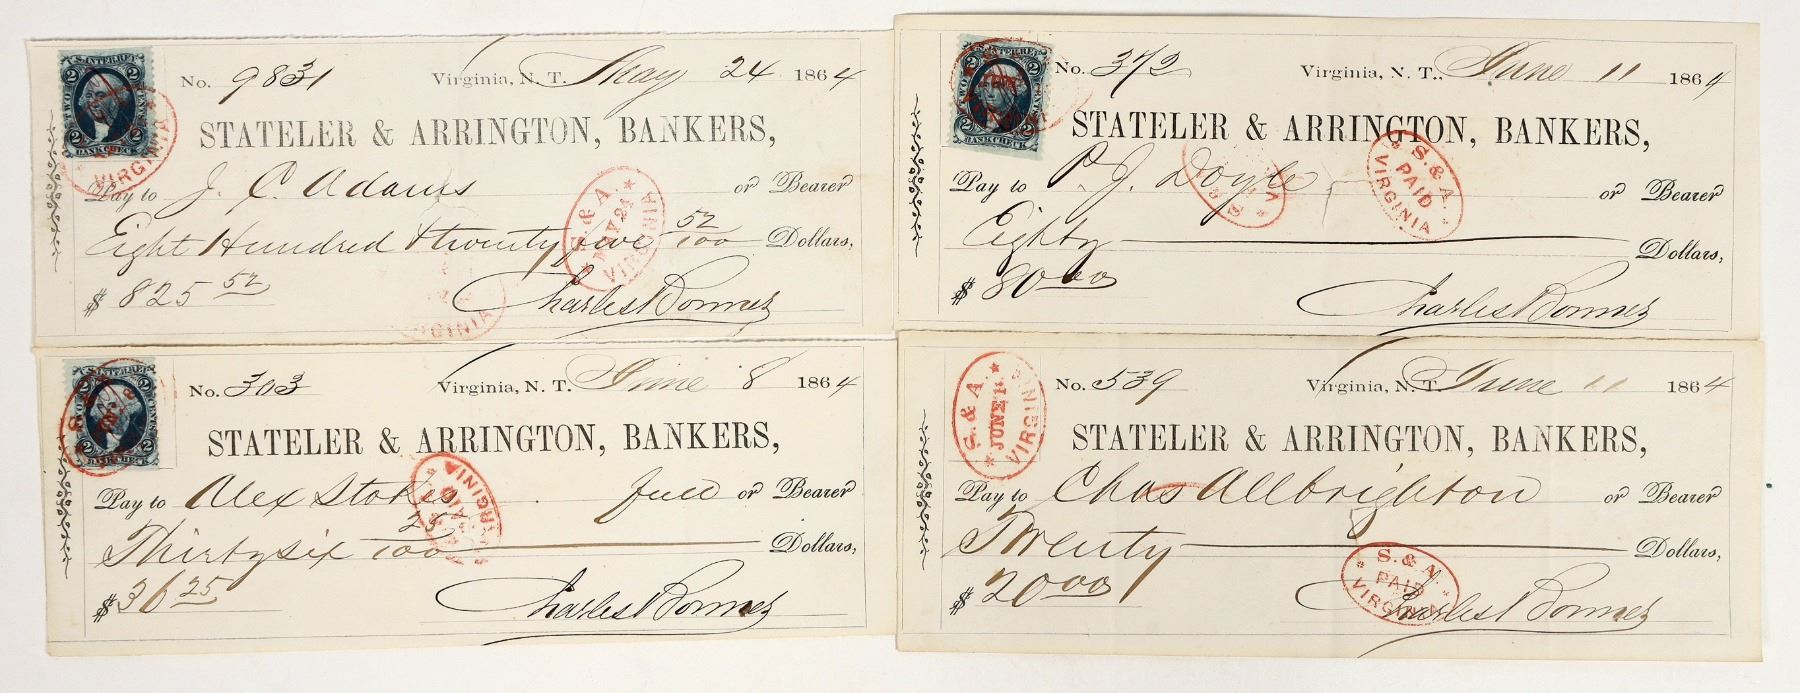 U.S. INTER. REV.
2 2
TWO CENTS
2 2
BANK CHECK
VIRGINIA
No. 9831 Virginia, N. T. May 24 1864
STATELER & ARRINGTON, BANKERS,
Pay to J. C. Adams or Bearer
Eight Hundred & twenty five 52/100 Dollars,
$ 825 52 Charles Bonner
S. & A.
MAY 24
VIRGINIA
VIRGINIA
U.S. INTER. REV.
2 2
TWO CENTS
2 2
BANK CHECK
No. 372 Virginia, N. T. June 11 1864
STATELER & ARRINGTON, BANKERS,
Pay to P. J. Doyle or Bearer
Eighty Dollars,
$ 80.00 Charles Bonner
S. & A.
PAID
VIRGINIA
U.S. INTER. REV.
2 2
TWO CENTS
2 2
BANK CHECK
No. 303 Virginia, N. T. June 8 1864
STATELER & ARRINGTON, BANKERS,
Pay to Alex Stokes full or Bearer
Thirty six 25/100 Dollars,
$ 36 25 Charles Bonner
VIRGINIA
S. & A.
JUNE 11
VIRGINIA
No. 539 Virginia, N. T. June 11 1864
STATELER & ARRINGTON, BANKERS,
Pay to Chas Allbrighton or Bearer
Twenty Dollars,
$ 20.00 Charles Bonner
S. & A.
PAID
VIRGINIA